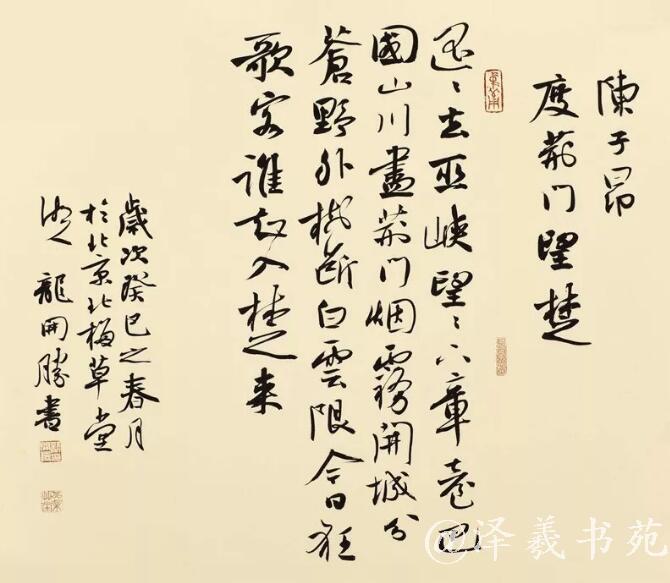 陳子昂
度荊門望楚
遥〻去巫峽望〻下章臺巴
國山川盡荊門烟霧開城分
蒼野外樹斷白雲隈今日狂
歌客誰知入楚来
歲次癸巳之春月
於北京北梅草堂
龍開勝書
@泽羲书苑